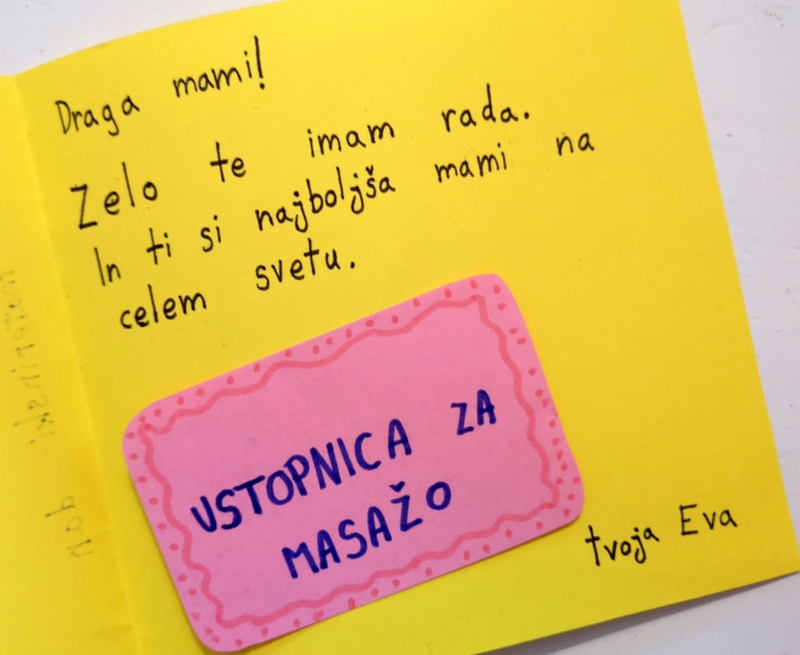 Draga mami!
Zelo te imam rada.
In ti si najboljša mami na
celem svetu.
USTOPNICA ZA
MASAŽO
tvoja Eva